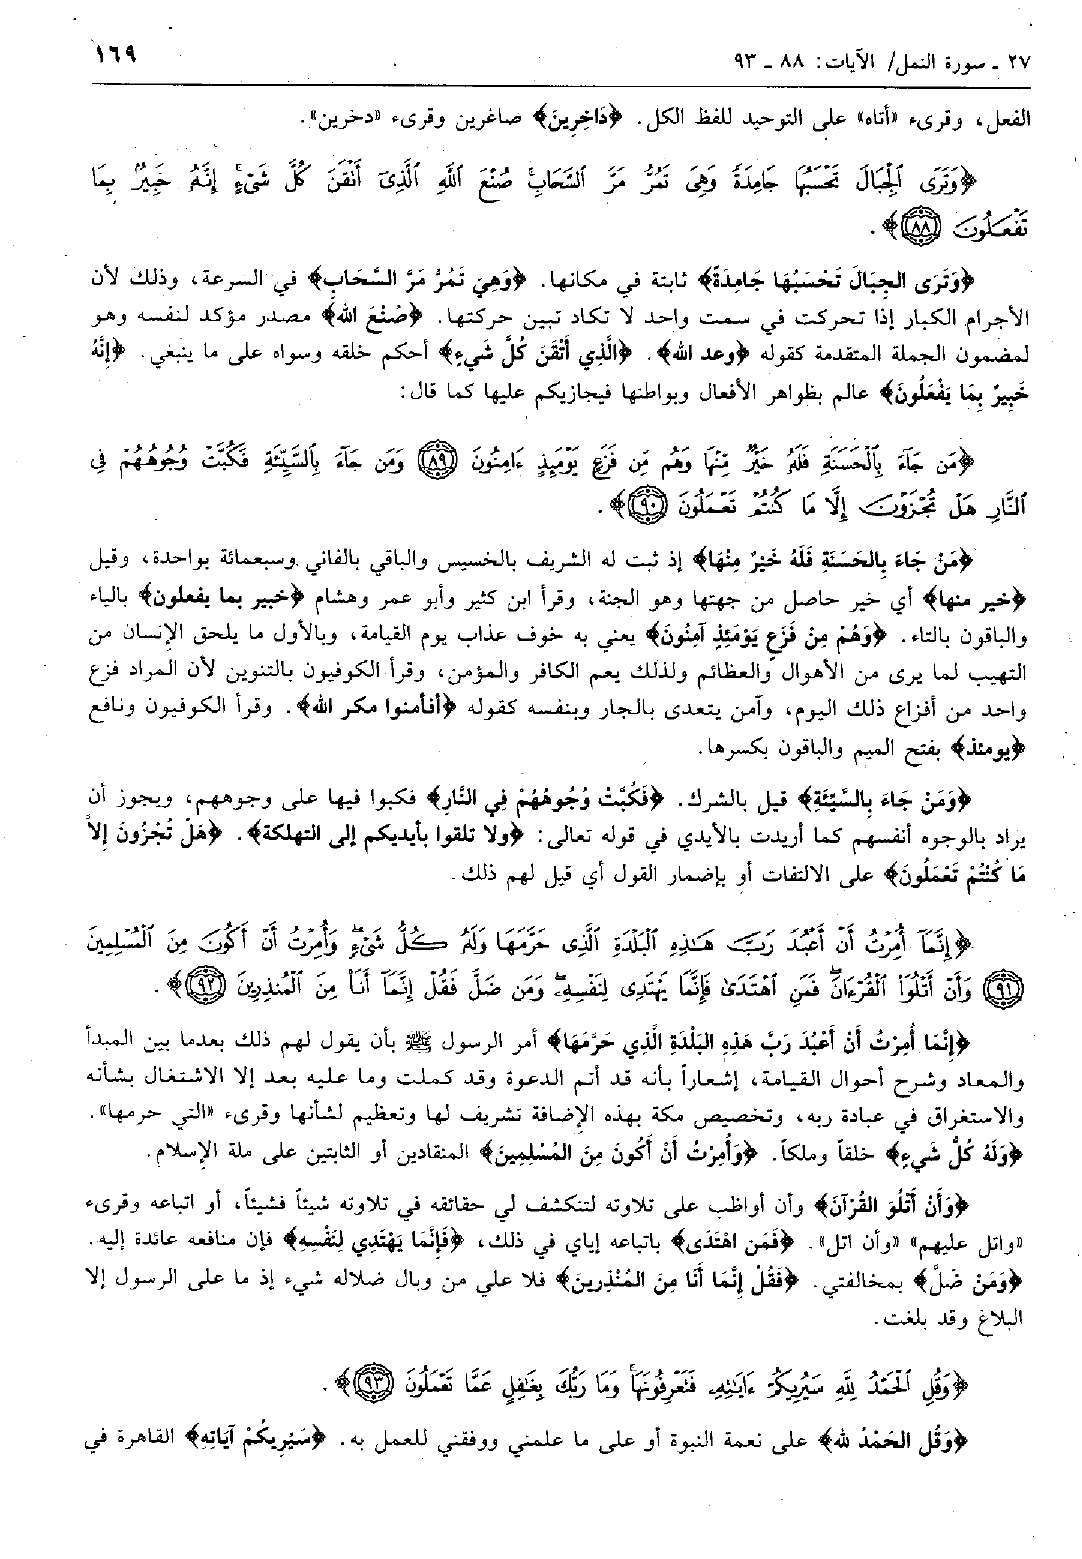 ٢٧ ـ سورة النمل/ الآيات: ٨٨ ـ ٩٣
١٦٩
الفعل، وقرىء «أتاه» على التوحيد للفظ الكل. ﴿دَاخِرِينَ﴾ صاغرين وقرىء «دخرين».
﴿وَتَرَى ٱلْجِبَالَ تَحْسَبُهَا جَامِدَةً وَهِىَ تَمُرُّ مَرَّ ٱلسَّحَابِۚ صُنْعَ ٱللَّهِ ٱلَّذِىٓ أَتْقَنَ كُلَّ شَىْءٍۚ إِنَّهُۥ خَبِيرٌۢ بِمَا
تَفْعَلُونَ ﴿٨٨﴾﴾.
﴿وَتَرَى الجِبَالَ تَحْسَبُهَا جَامِدَةً﴾ ثابتة في مكانها. ﴿وَهِيَ تَمُرُّ مَرَّ السَّحَابِ﴾ في السرعة، وذلك لأن
الأجرام الكبار إذا تحركت في سمت واحد لا تكاد تبين حركتها. ﴿صُنْعَ الله﴾ مصدر مؤكد لنفسه وهو
لمضمون الجملة المتقدمة كقوله ﴿وعد الله﴾. ﴿الَّذِي أَتْقَنَ كُلَّ شَيءٍ﴾ أحكم خلقه وسواه على ما ينبغي. ﴿إِنَّهُ
خَبِيرٌ بِمَا يَفْعَلُونَ﴾ عالم بظواهر الأفعال وبواطنها فيجازيكم عليها كما قال:
﴿مَن جَآءَ بِٱلْحَسَنَةِ فَلَهُۥ خَيْرٌ مِّنْهَا وَهُم مِّن فَزَعٍ يَوْمَئِذٍ ءَامِنُونَ ﴿٨٩﴾ وَمَن جَآءَ بِٱلسَّيِّئَةِ فَكُبَّتْ وُجُوهُهُمْ فِى
ٱلنَّارِ هَلْ تُجْزَوْنَ إِلَّا مَا كُنتُمْ تَعْمَلُونَ ﴿٩٠﴾﴾.
﴿مَنْ جَاءَ بِالحَسَنَةِ فَلَهُ خَيْرٌ مِنْهَا﴾ إذ ثبت له الشريف بالخسيس والباقي بالفاني وسبعمائة بواحدة، وقيل
﴿خير منها﴾ أي خير حاصل من جهتها وهو الجنة، وقرأ ابن كثير وأبو عمر وهشام ﴿خبير بما يفعلون﴾ بالياء
والباقون بالتاء. ﴿وَهُمْ مِنْ فَزَعٍ يَوْمَئِذٍ آمِنُونَ﴾ يعني به خوف عذاب يوم القيامة، وبالأول ما يلحق الإنسان من
التهيب لما يرى من الأهوال والعظائم ولذلك يعم الكافر والمؤمن، وقرأ الكوفيون بالتنوين لأن المراد فزع
واحد من أفزاع ذلك اليوم، وآمن يتعدى بالجار وبنفسه كقوله ﴿أفأمنوا مكر الله﴾. وقرأ الكوفيون ونافع
﴿يومئذ﴾ بفتح الميم والباقون بكسرها.
﴿وَمَنْ جَاءَ بِالسَّيِّئَةِ﴾ قيل بالشرك. ﴿فَكُبَّتْ وُجُوهُهُمْ فِي النَّارِ﴾ فكبوا فيها على وجوههم، ويجوز أن
يراد بالوجوه أنفسهم كما أريدت بالأيدي في قوله تعالى: ﴿ولا تلقوا بأيديكم إلى التهلكة﴾. ﴿هَلْ تُجْزَونَ إِلاَّ
مَا كُنْتُمْ تَعْمَلُونَ﴾ على الالتفات أو بإضمار القول أي قيل لهم ذلك.
﴿إِنَّمَآ أُمِرْتُ أَنْ أَعْبُدَ رَبَّ هَٰذِهِ ٱلْبَلْدَةِ ٱلَّذِى حَرَّمَهَا وَلَهُۥ كُلُّ شَىْءٍۖ وَأُمِرْتُ أَنْ أَكُونَ مِنَ ٱلْمُسْلِمِينَ
﴿٩١﴾ وَأَنْ أَتْلُوَا۟ ٱلْقُرْءَانَۖ فَمَنِ ٱهْتَدَىٰ فَإِنَّمَا يَهْتَدِى لِنَفْسِهِۦۖ وَمَن ضَلَّ فَقُلْ إِنَّمَآ أَنَا۠ مِنَ ٱلْمُنذِرِينَ ﴿٩٢﴾﴾.
﴿إِنَّمَا أُمِرْتُ أَنْ أَعْبُدَ رَبَّ هَذِهِ البَلْدَةِ الَّذِي حَرَّمَهَا﴾ أمر الرسول ﷺ بأن يقول لهم ذلك بعدما بين المبدأ
والمعاد وشرح أحوال القيامة، إشعاراً بأنه قد أتم الدعوة وقد كملت وما عليه بعد إلا الاشتغال بشأنه
والاستغراق في عبادة ربه، وتخصيص مكة بهذه الإضافة تشريف لها وتعظيم لشأنها وقرىء «التي حرمها».
﴿وَلَهُ كُلُّ شَيءٍ﴾ خلقاً وملكاً. ﴿وَأُمِرْتُ أَنْ أَكُونَ مِنَ المُسْلِمِينَ﴾ المنقادين أو الثابتين على ملة الإسلام.
﴿وَأَنْ أَتْلُوَ القُرْآنَ﴾ وأن أواظب على تلاوته لتنكشف لي حقائقه في تلاوته شيئاً فشيئاً، أو اتباعه وقرىء
«واتل عليهم» «وأن اتل». ﴿فَمَن اهْتَدَى﴾ باتباعه إياي في ذلك، ﴿فَإِنَّمَا يَهْتَدِي لِنَفْسِهِ﴾ فإن منافعه عائدة إليه.
﴿وَمَنْ ضَلَّ﴾ بمخالفتي. ﴿فَقُلْ إِنَّمَا أَنَا مِنَ المُنْذِرِينَ﴾ فلا علي من وبال ضلاله شيء إذ ما على الرسول إلا
البلاغ وقد بلغت.
﴿وَقُلِ ٱلْحَمْدُ لِلَّهِ سَيُرِيكُمْ ءَايَٰتِهِۦ فَتَعْرِفُونَهَاۚ وَمَا رَبُّكَ بِغَٰفِلٍ عَمَّا تَعْمَلُونَ ﴿٩٣﴾﴾.
﴿وَقُل الحَمْدُ لله﴾ على نعمة النبوة أو على ما علمني ووفقني للعمل به. ﴿سَيُرِيكُمْ آيَاتِهِ﴾ القاهرة في